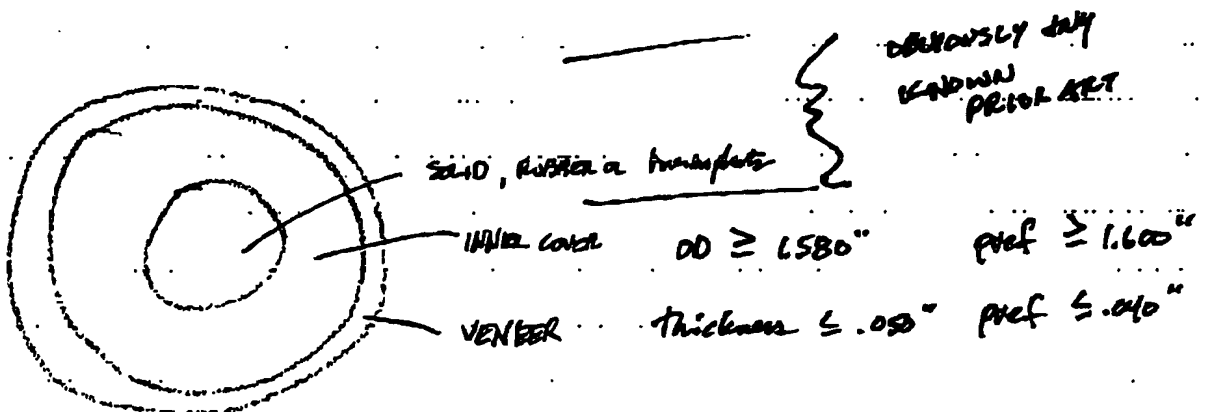 OBVIOUSLY ANY
KNOWN
PRIOR ART
SOLID, RUBBER or
INNER COVER OD ≥ 1.580" pref ≥ 1.600"
VENEER thickness ≤ .050" pref ≤ .040"